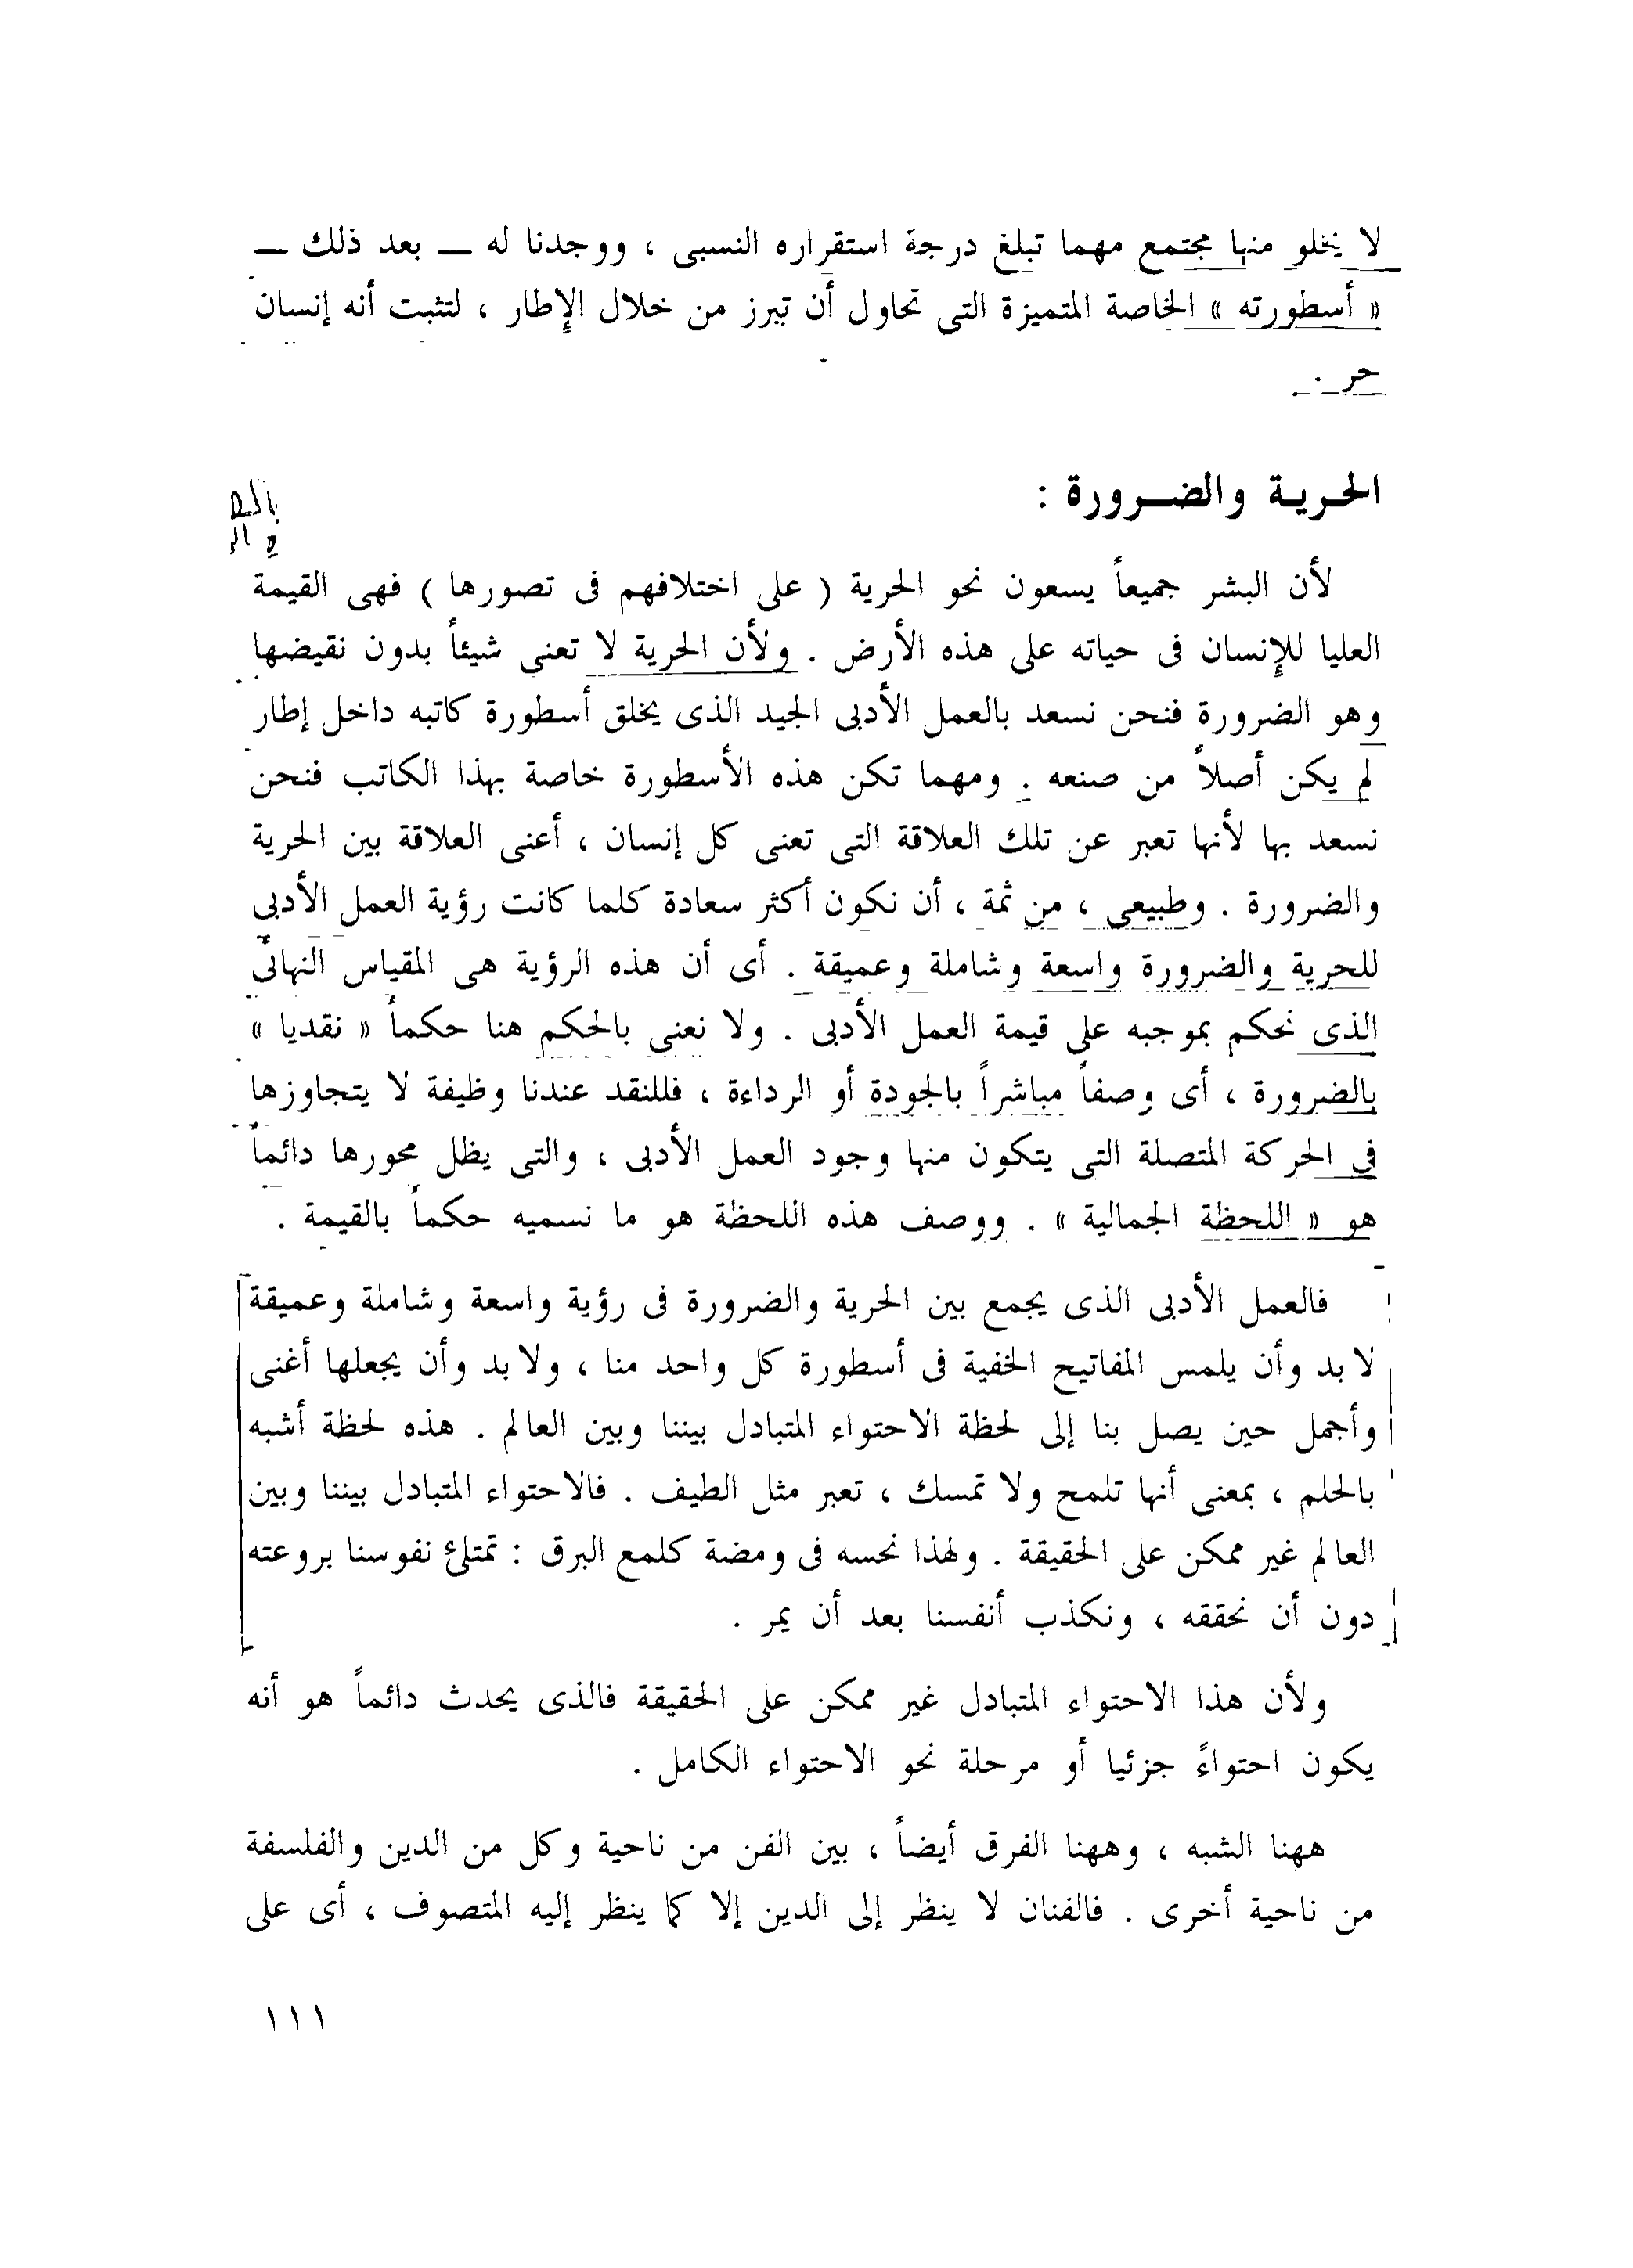 لا يخلو منها مجتمع مهما تبلغ درجة استقراره النسبى ، ووجدنا له ــ بعد ذلك ــ
« أسطورته » الخاصة المتميزة التى تحاول أن تبرز من خلال الإطار ، لتثبت أنه إنسان
حر .
الحرية والضرورة :
لأن البشر جميعاً يسعون نحو الحرية ( على اختلافهم فى تصورها ) فهى القيمة
العليا للإنسان فى حياته على هذه الأرض . ولأن الحرية لا تعنى شيئاً بدون نقيضها
وهو الضرورة فنحن نسعد بالعمل الأدبى الجيد الذى يخلق أسطورة كاتبه داخل إطار
لم يكن أصلاً من صنعه . ومهما تكن هذه الأسطورة خاصة بهذا الكاتب فنحن
نسعد بها لأنها تعبر عن تلك العلاقة التى تعنى كل إنسان ، أعنى العلاقة بين الحرية
والضرورة . وطبيعى ، من ثمة ، أن نكون أكثر سعادة كلما كانت رؤية العمل الأدبى
للحرية والضرورة واسعة وشاملة وعميقة . أى أن هذه الرؤية هى المقياس النهائى
الذى نحكم بموجبه على قيمة العمل الأدبى . ولا نعنى بالحكم هنا حكماً « نقديا »
بالضرورة ، أى وصفاً مباشراً بالجودة أو الرداءة ، فللنقد عندنا وظيفة لا يتجاوزها
فى الحركة المتصلة التى يتكون منها وجود العمل الأدبى ، والتى يظل محورها دائماً
هو « اللحظة الجمالية » . ووصف هذه اللحظة هو ما نسميه حكماً بالقيمة .
فالعمل الأدبى الذى يجمع بين الحرية والضرورة فى رؤية واسعة وشاملة وعميقة
لابد وأن يلمس المفاتيح الخفية فى أسطورة كل واحد منا ، ولابد وأن يجعلها أغنى
وأجمل حين يصل بنا إلى لحظة الاحتواء المتبادل بيننا وبين العالم . هذه لحظة أشبه
بالحلم ، بمعنى أنها تلمح ولا تمسك ، تعبر مثل الطيف . فالاحتواء المتبادل بيننا وبين
العالم غير ممكن على الحقيقة . ولهذا نحسه فى ومضة كلمع البرق : تمتلئ نفوسنا بروعته
دون أن نحققه ، ونكذب أنفسنا بعد أن يمر .
ولأن هذا الاحتواء المتبادل غير ممكن على الحقيقة فالذى يحدث دائماً هو أنه
يكون احتواءً جزئيا أو مرحلة نحو الاحتواء الكامل .
ههنا الشبه ، وههنا الفرق أيضاً ، بين الفن من ناحية وكل من الدين والفلسفة
من ناحية أخرى . فالفنان لا ينظر إلى الدين إلا كما ينظر إليه المتصوف ، أى على
١١١